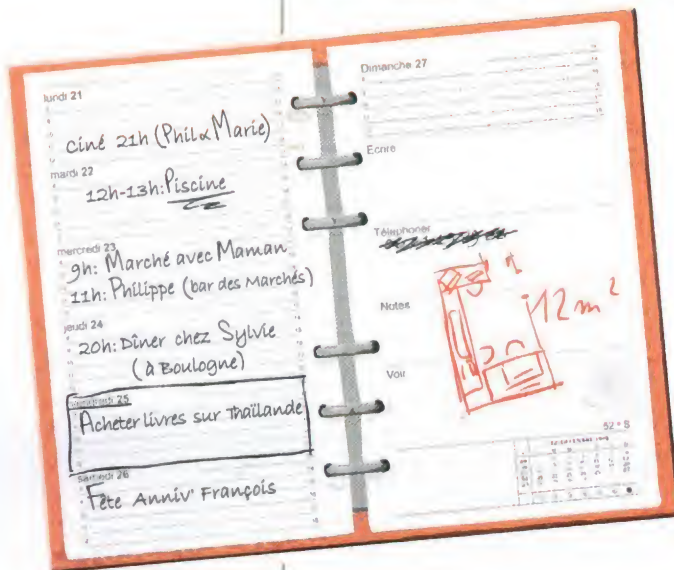 lundi 21
ciné 21h (Phil & Marie)
mardi 22
12h-13h: Piscine
mercredi 23
9h: Marché avec Maman
11h: Philippe (bar des Marchés)
jeudi 24
20h: Dîner chez Sylvie
(à Boulogne)
25
Acheter livres sur Thaïlande
samedi 26
Fête Anniv' François
Dimanche 27
Ecrire
Téléphoner
Notes
12 m²
Voir
52 * S